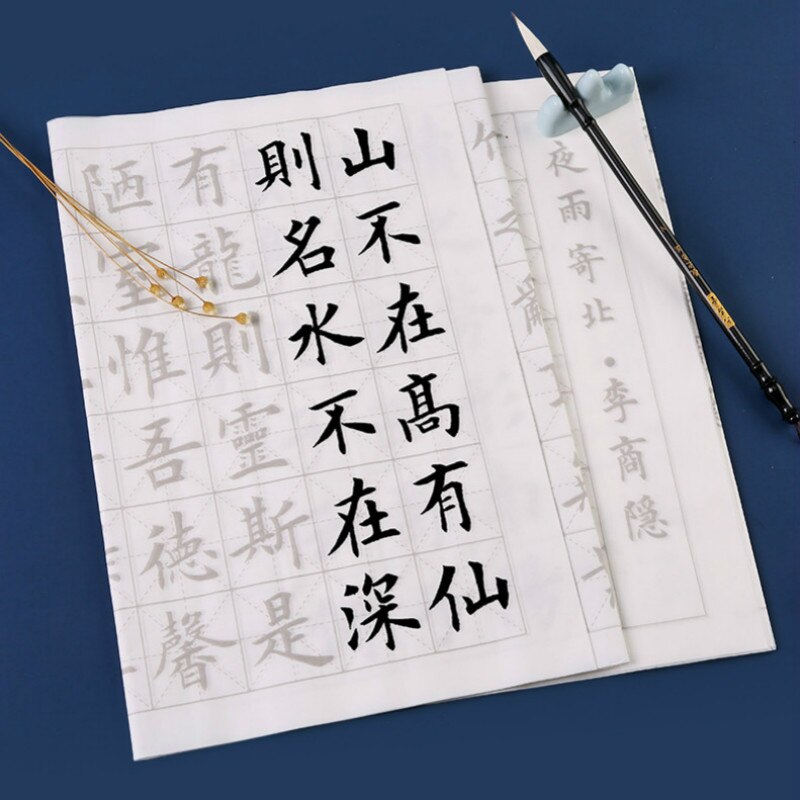 山不在高有仙
則名水不在深
有龍則靈斯是
陋室惟吾德馨
夜雨寄北·李商隐